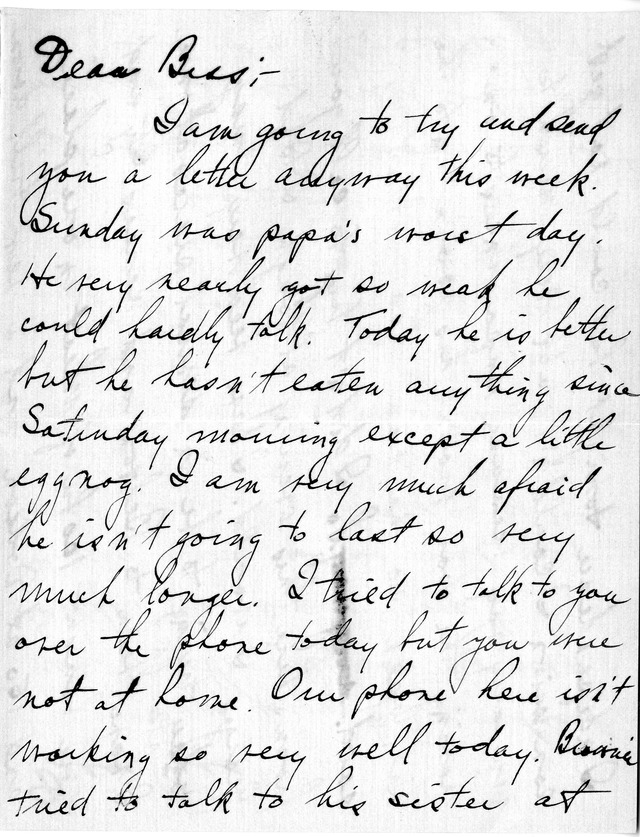 Dear Bess;-
I am going to try and send
you a letter anyway this week.
Sunday was papa's worst day.
He very nearly got so weak he
could hardly talk. Today he is better
but he hasn't eaten anything since
Saturday morning except a little
eggnog. I am very much afraid
he isn't going to last so very
much longer. I tried to talk to you
over the phone today but you were
not at home. Our phone here isn't
working so very well today. Brownie
tried to talk to his sister at